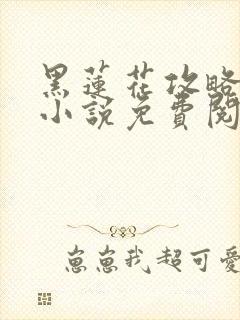 黑蓮花攻略
小說免費閱
崽崽我超可愛